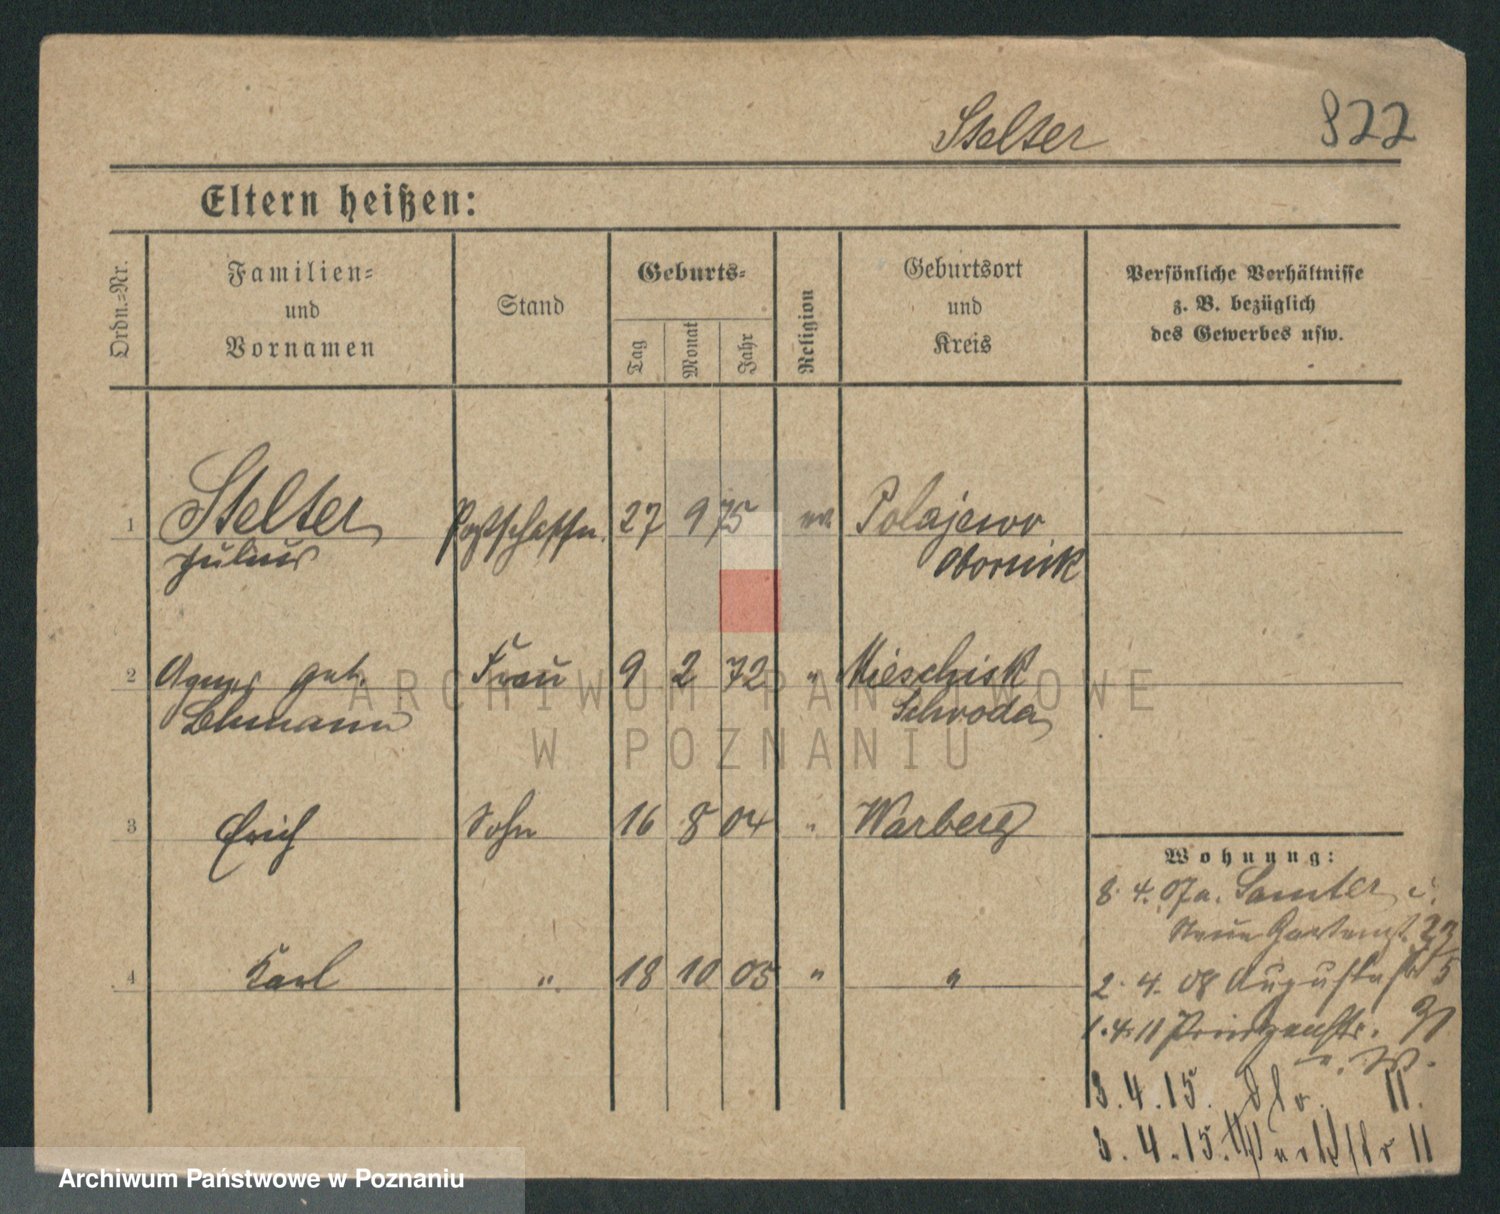 Stelter 822
Eltern heißen:
Ordn.=Nr.
Familien=
und
Vornamen
Stand
Geburts=
Tag
Monat
Jahr
Religion
Geburtsort
und
Kreis
Persönliche Verhältnisse
z. B. bezüglich
des Gewerbes usw.
1 Stelter 27 9 75 ev Polajewo
Julius Obornik
2 Agnes geb. Frau 9 2 72 " Mieschisk
Lehmann Schroda
ARCHIWUM PAŃSTWOWE
W POZNANIU
3 Erich Sohn 16 8 04 " Warberg
Wohnung:
8. 4. 07 a. Samter
Neue Gartenst. 23
4 Karl " 18 10 05 " "
2. 4. 08 Augustastr 5
1. 4. 11 Prinzenstr. 31
3. 4. 15. 11.
3. 4. 15. 11
Archiwum Państwowe w Poznaniu